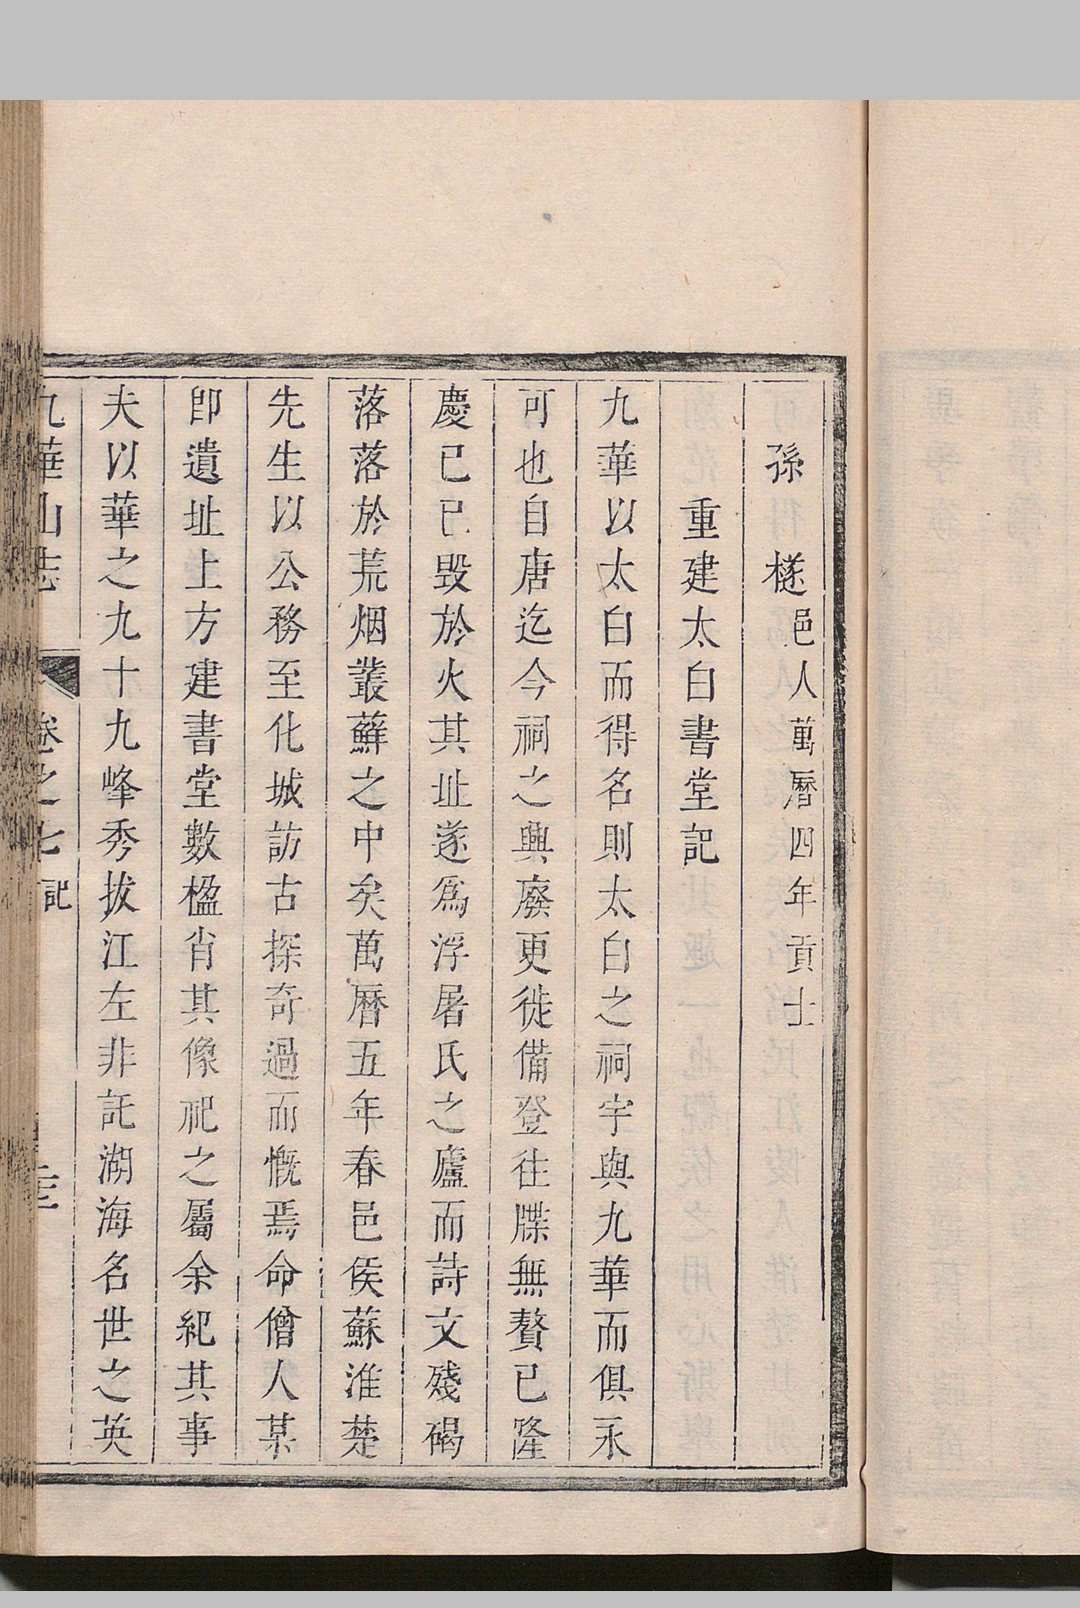 孫 檖邑人萬曆四年貢士
重建太白書堂記
九華以太白而得名則太白之祠宇與九華而俱永
可也自唐迄今祠之興廢更徙備登往牒無贅已隆
慶己巳毀於火其址遂爲浮屠氏之廬而詩文殘碣
落落於荒烟叢蘚之中矣萬曆五年春邑侯蘇淮楚
先生以公務至化城訪古探奇過而慨焉命僧人某
卽遺址上方建書堂數楹肖其像祀之屬余紀其事
夫以華之九十九峰秀拔江左非託湖海名世之英
九華山志 卷之七 記